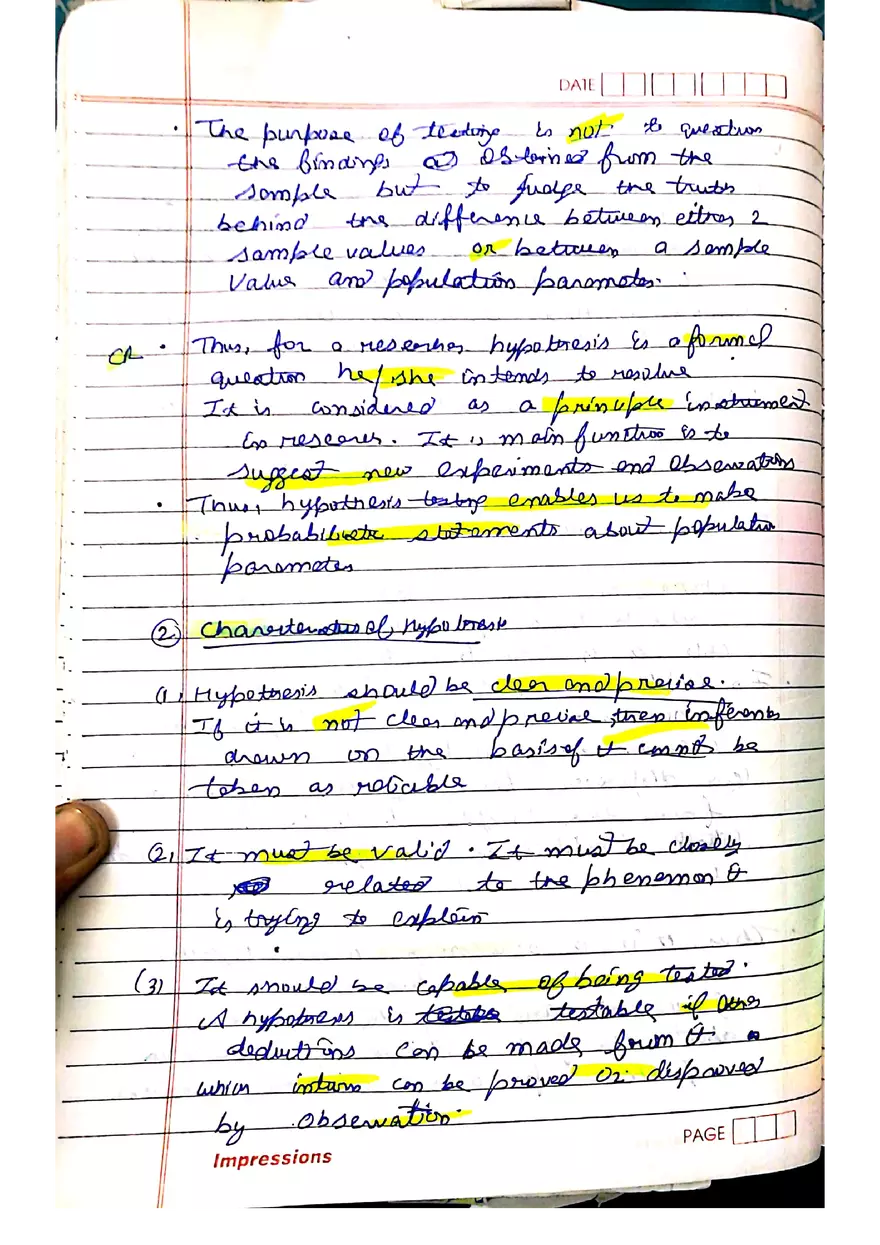 DATE
· The purpose of testing is not to question
the findings obtained from the
sample but to judge the truth
behind the difference between either 2
sample values or between a sample
value and population parameter.
· Thus, for a researcher hypothesis is a formal
question he/she intends to resolve
It is considered as a principle instrument
in research. It is main function is to
suggest new experiments and observations
· Thus, hypothesis testing enables us to make
probabilistic statements about population
parameter
② Characteristics of hypothesis
(1) Hypothesis should be clear and precise.
If it is not clear and precise, then inferences
drawn on the basis of it cannot be
taken as reliable
(2) It must be valid. It must be closely
related to the phenemon it
is trying to explain
(3) It should be capable of being tested.
A hypothesis is testable if other
deductions can be made from it
which inturn can be proved or disproved
by observation.
PAGE
Impressions